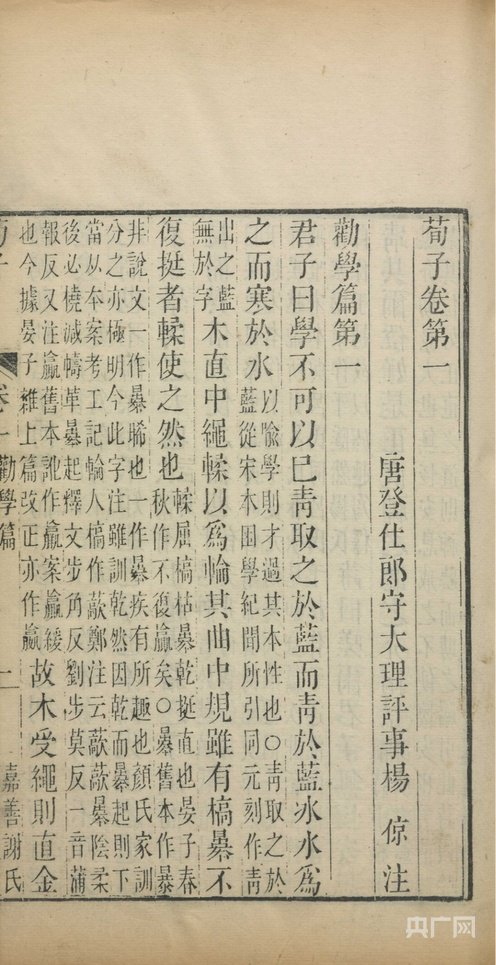 荀子卷第一
唐登仕郎守大理評事楊 倞 注
勸學篇第一
君子曰學不可以已青取之於藍而青於藍冰水爲
之而寒於水以喻學則才過其本性也○青取之於
藍從宋本困學紀聞所引同元刻作青
出之藍
無於字木直中繩輮以爲輪其曲中規雖有槁暴不
復挺者輮使之然也輮屈槁枯暴乾挺直也晏子春
秋作不復贏矣○暴舊本作㬥
非說文一作㬥晞也一作暴疾有所趣也顏氏家訓
分之亦極明今此字注雖訓乾然因乾而暴起則下
當从本案考工記輪人槁作藃鄭注云藃藃暴陰柔
後必橈減幬革暴起釋文步角反劉步莫反一音蒲
報反又注贏舊本訛作羸案贏緩
也今據晏子雜上篇改正亦作嬴故木受繩則直金
荀子 卷一 勸學篇
嘉善謝氏
央广网